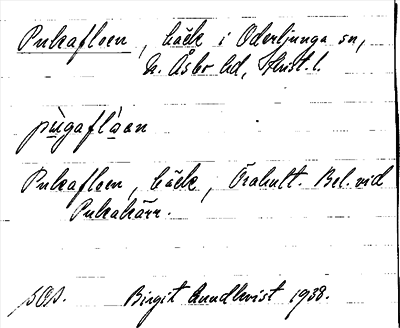 Pukafleen, bäck i Oderljunga sn,
N. Åsbo hd, Krist. l.
pùgaflàan
Pukafleen, bäck, Örahult. Bel. vid
Pukakärr.
pop. Birgit Lundkvist 1938.